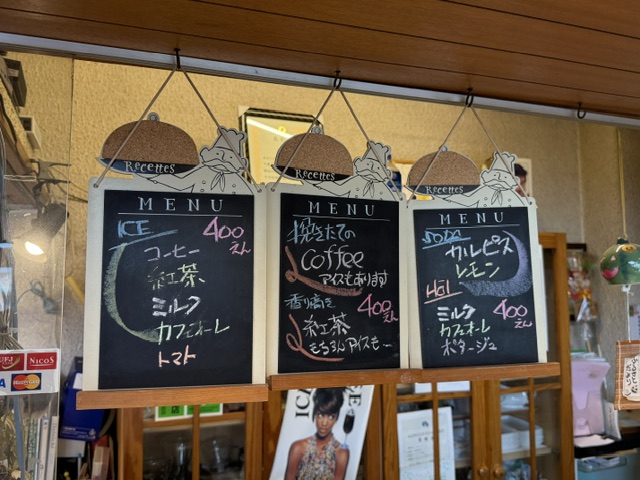 Recettes
MENU
ICE
400えん
コーヒー
紅茶
ミルク
カフェオーレ
トマト
Recettes
MENU
挽きたての
Coffee
アイスもあります
香り高き
400えん
紅茶
もちろんアイスも〜
Recettes
MENU
SODA
カルピス
レモン
HOT
400えん
ミルク
カフェオーレ
ポタージュ
NICOS
MasterCard